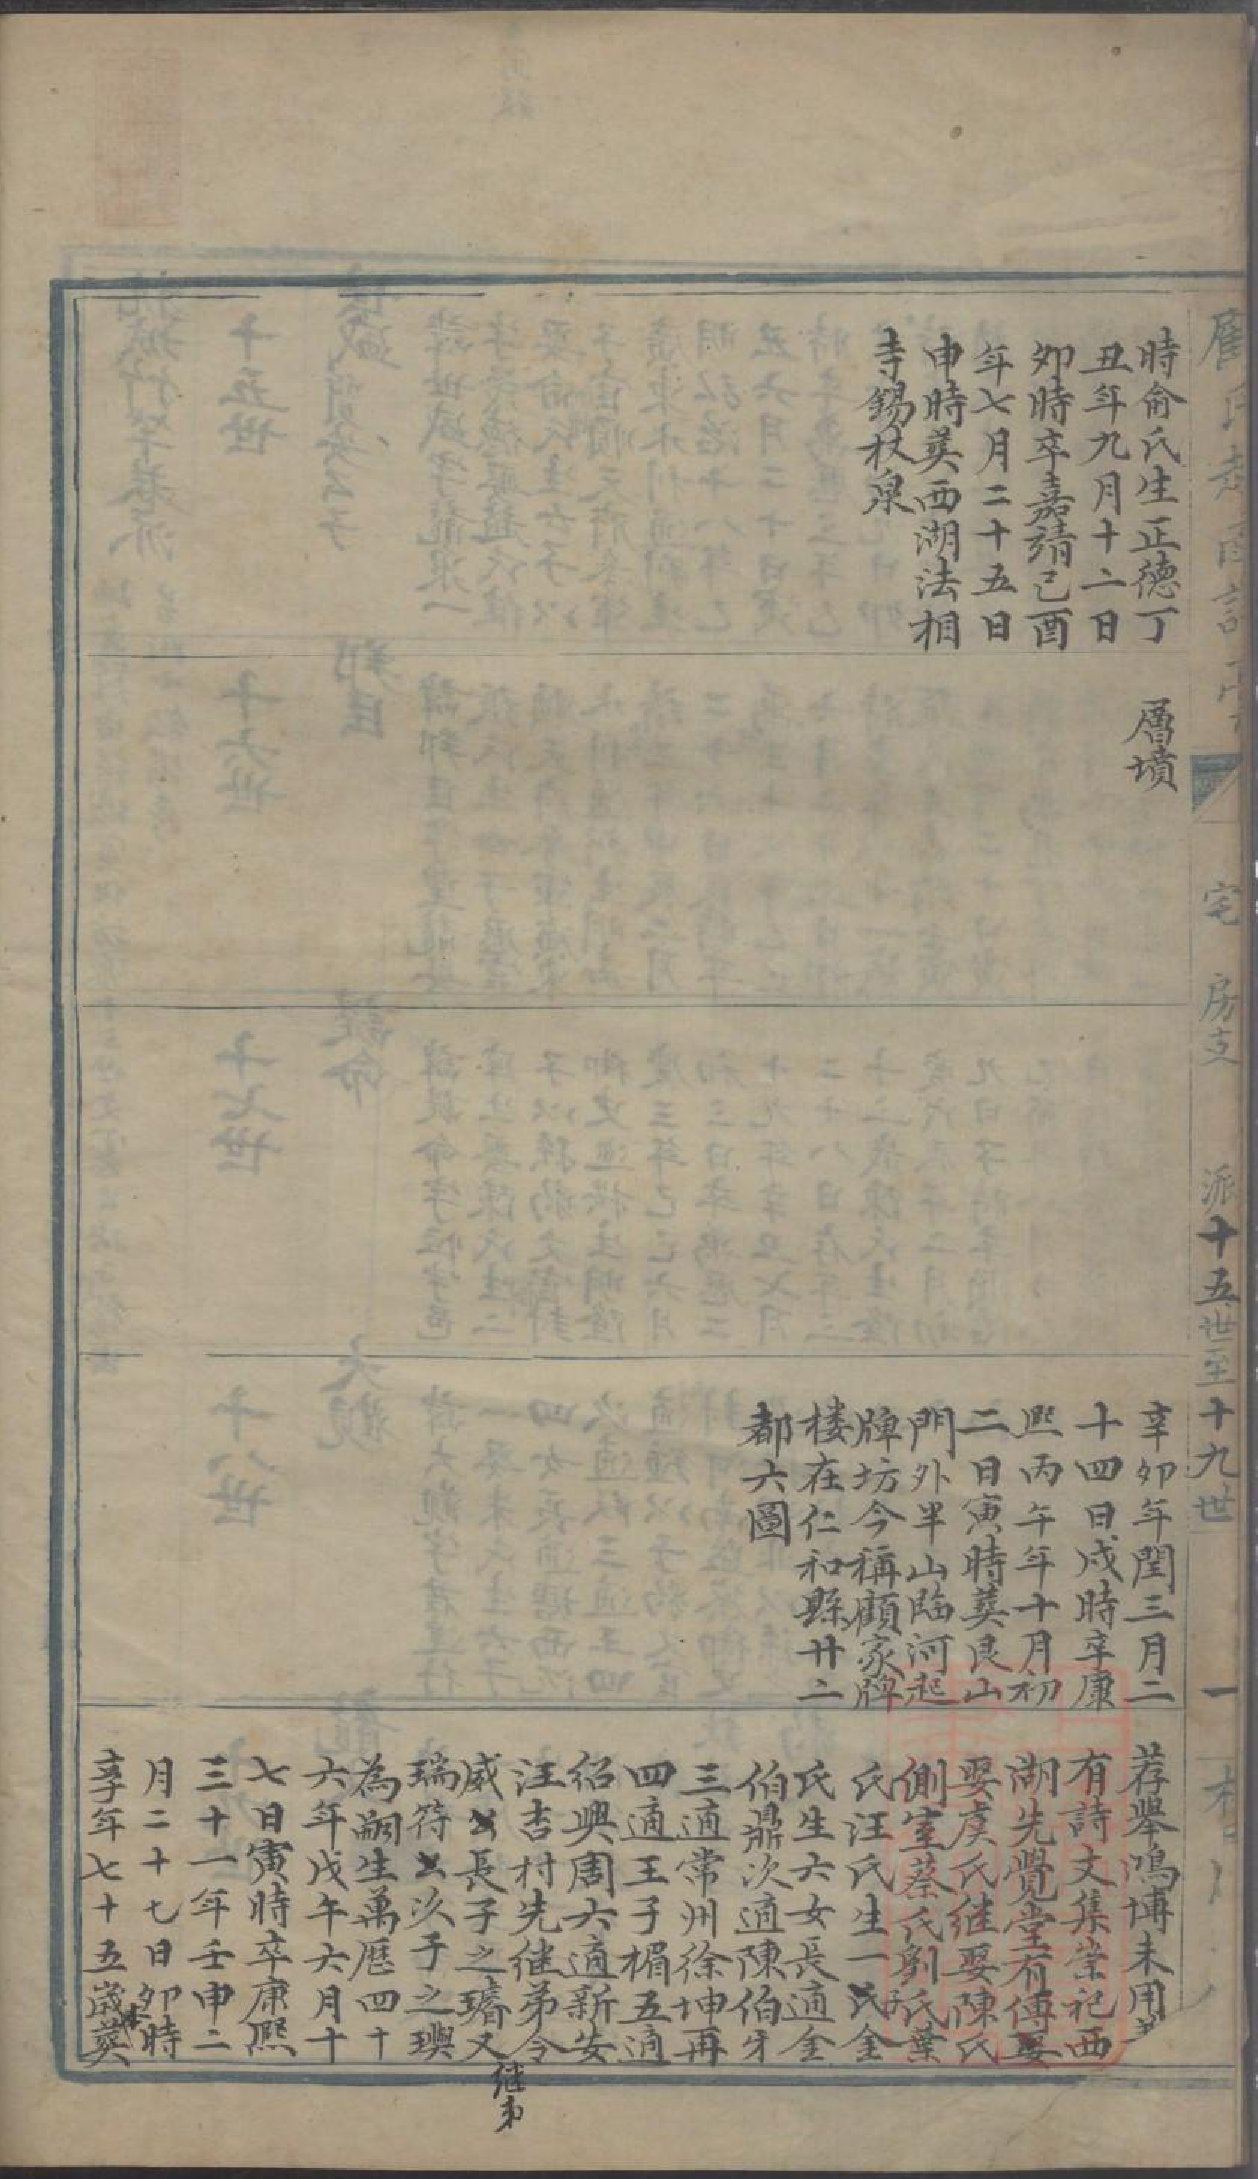 時俞氏生正德丁
丑年九月十二日
卯時卒嘉靖己酉
年七月二十五日
申時葬西湖法相
寺錫杖泉
層墳
辛卯年閏三月二
十四日戌時卒康
熙丙午年十月初
二日寅時葬艮山
門外半山臨河起
牌坊今稱顧家牌
楼在仁和縣廿二
都六圖
荐舉鴻博未用
有詩文集崇祀西
湖先覺堂有傳娶
娶虞氏继娶陳氏
側室蔡氏劉氏葉
氏汪氏生一氏金
氏生六女長適金
伯鼎次適陳伯牙
三適常州徐坤再
四適王子楣五適
紹興周六適新安
汪吉村先继弟令
威公長子之璿又
继弟
瑞符公次子之璵
為嗣生萬厯四十
六年戊午六月十
七日寅時卒康熙
三十一年壬申二
月二十七日卯時
享年七十五歲葬
宅
房支
派十五世至十九世
一